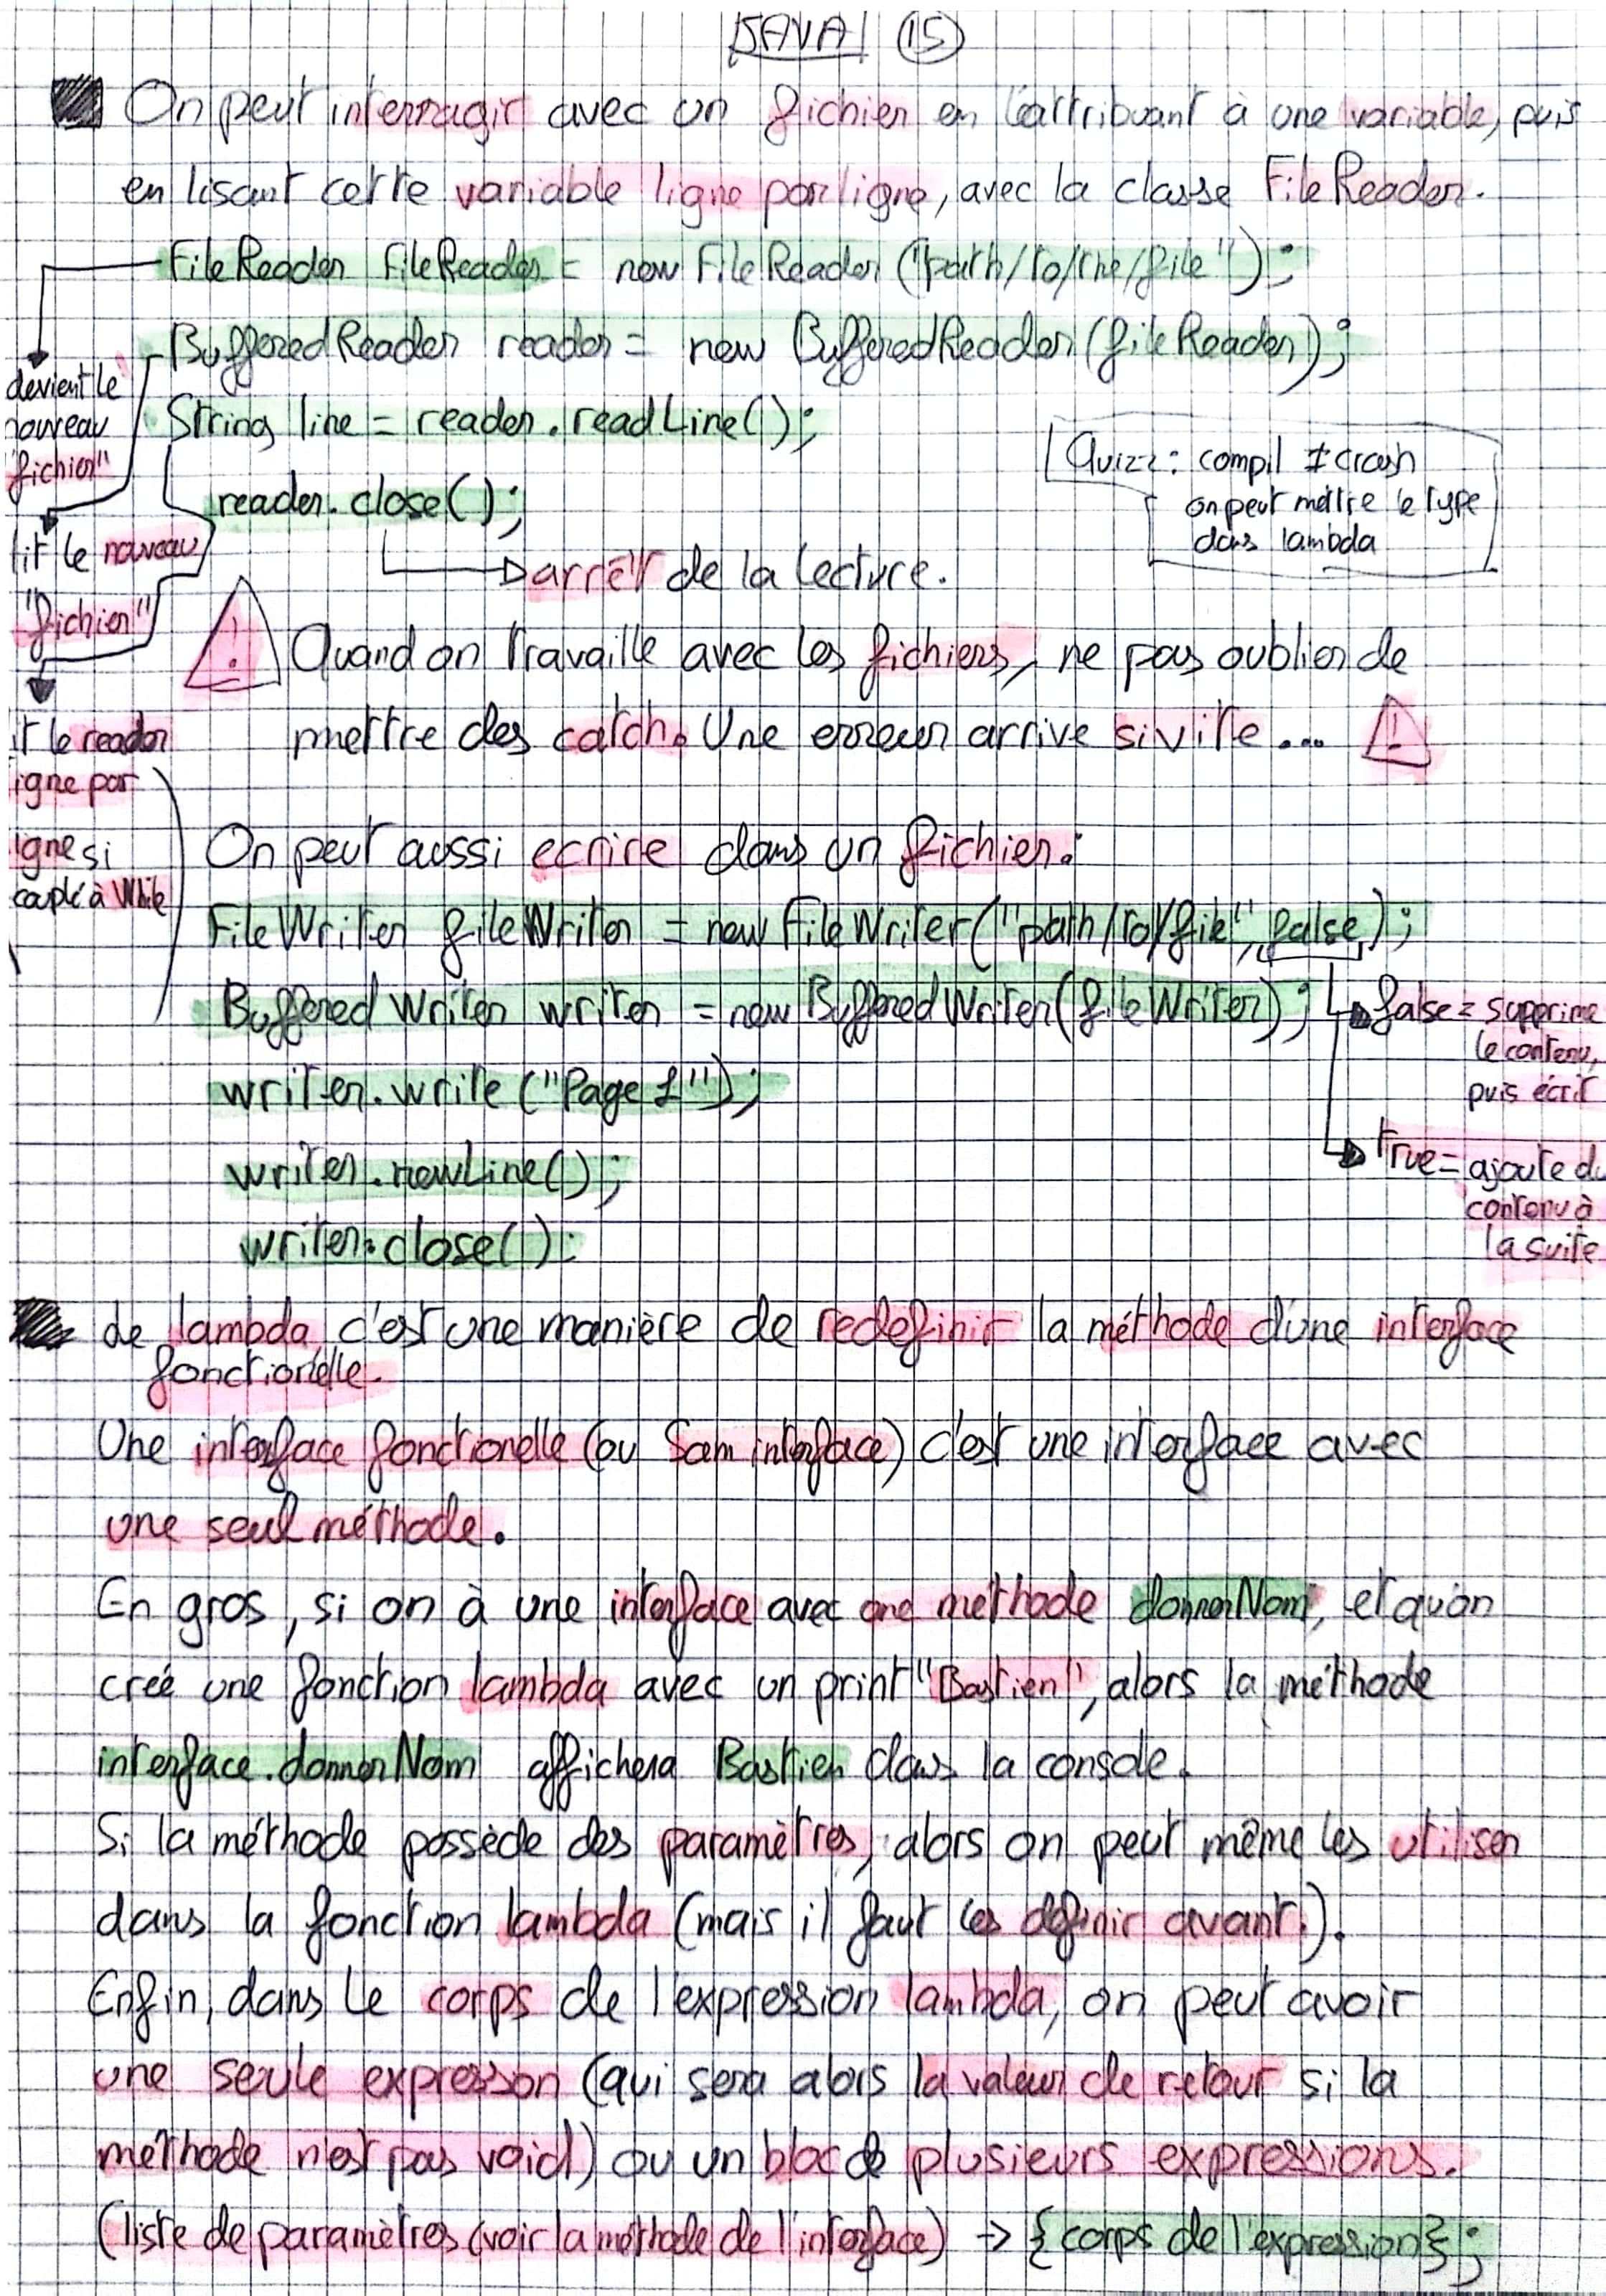 JAVA 15
On peut interragir avec un fichier en l'attribuant à une variable, puis
en lisant cette variable ligne par ligne, avec la classe FileReader.
FileReader FileReader = new FileReader ("path/to/the/file");
BufferedReader reader = new BufferedReader(fileReader);
String line = reader.readLine();
reader.close();
arrêt de la lecture.
devient le
nouveau
"fichier"
lit le nouveau
"fichier"
it le reader
igne par
igne si
couplé à While
Quizz: compil ≠ crash
on peut mettre le type
dans lambda
Quand on travaille avec les fichiers, ne pas oublier de
mettre des catch. Une erreur arrive si vite...
On peut aussi ecrire dans un fichier:
FileWriter fileWriter = new FileWriter("path/to/file", false);
BufferedWriter writer = new BufferedWriter(fileWriter);
writer.write ("Page 1");
writer.newLine();
writer.close();
false = supprime
le contenu,
puis écrit
true = ajoute du
contenu à
la suite
Le lambda, c'est une manière de redefinir la méthode d'une interface
fonctionelle.
Une interface fonctionelle (ou Sam interface) c'est une interface avec
une seul méthode.
En gros, si on à une interface avec une méthode donnerNom, et qu'on
créé une fonction lambda avec un print "Bastien", alors la méthode
interface.donnerNom affichera Bastien dans la console.
Si la méthode possède des paramètres, alors on peut même les utiliser
dans la fonction lambda (mais il faut les définir avant).
Enfin, dans le corps de l'expression lambda, on peut avoir
une seule expresson (qui sera alors la valeur de retour si la
méthode n'est pas void) ou un bloc de plusieurs expressions.
(liste de paramètres (voir la méthode de l'interface) -> {corps de l'expression};